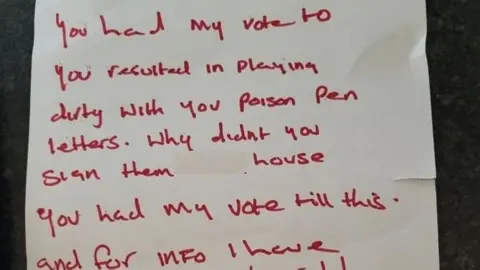 You had my vote to
you resulted in playing
dirty with you poison pen
letters. Why didnt you
sign them house
You had my vote till this.
and for INFO I have